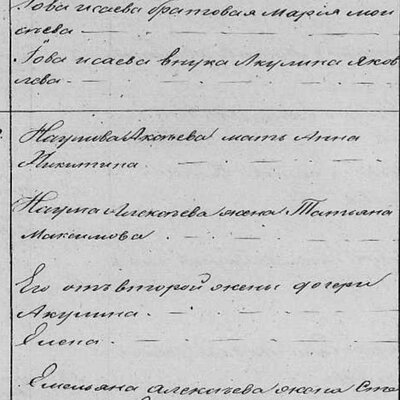 Іова Исаева братовая Марія Мои
сѣева
Іова Исаева внука Акулина Яков
лева
Наума Алексѣева мать Анна
Никитина
Наума Алексѣева жена Татьяна
Максимова
Его отъ второй жены дочери
Акулина.
Елена.
Емельяна Алексѣева жена Сте